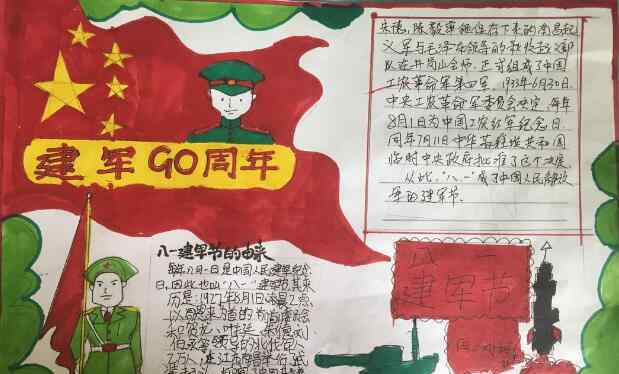 建军90周年
朱德,陈毅率领保存下来的南昌起
义军与毛泽东领导的秋收起义部
队在井岗山会师,正式组成了中国
工农革命军第四军。1933年6月30日
中央工农革命军委员会决定,每年
8月1日为中国工农红军纪念日,
同年7月11日中华苏维埃共和国
临时中央政府批准了这个决定。
从此,"八一"成了中国人民解放
军的建军节。
八一建军节的由来
每年八月一日是中国人民建军纪念
日,因此也叫"八一"建军节,其来
历是:1927年8月1日凌晨2点,
以周恩来为首的
贺龙、叶挺、朱德、刘
伯承等领导的北伐军
2万人,在江西南昌举行武
八一
建军节